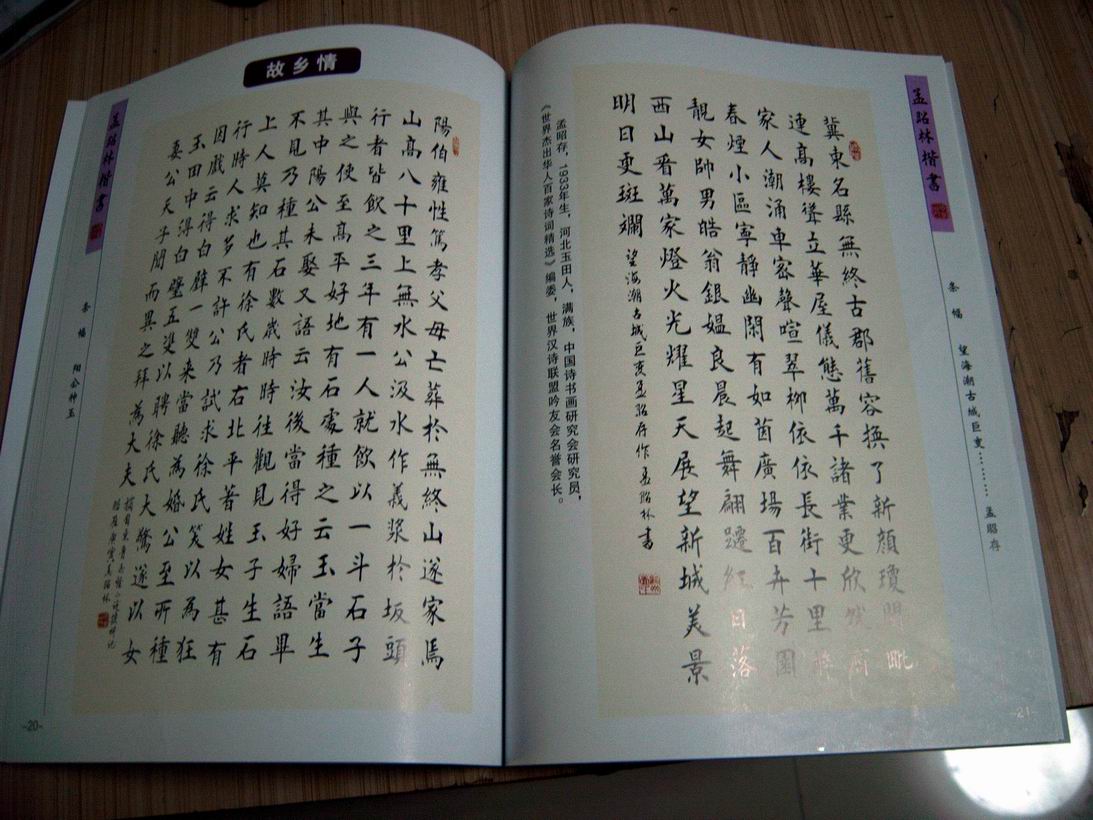 故乡情
孟昭林楷書
条幅 阳公种玉
陽伯雍性篤孝父母亡葬於無終山遂家焉
山高八十里上無水公汲水作義漿於坂頭
行者皆飲之三年有一人就飲以一斗石子
與之使至高平好地有石處種之云玉當生
其中陽公未娶又語云汝後當得好婦語畢
不見乃種其石數歲時時往觀見玉子生石
上人莫知也有徐氏者右北平著姓女甚有
行時人求多不許公乃試求徐氏笑以為狂
因戲云得白璧一雙来當聽為婚公至所種
玉田中得白璧五雙以聘徐氏大驚遂以女
妻公天子聞而異之拜為大夫
-20-
孟昭林楷書
条幅 望海潮古城巨变………孟昭存
冀東名縣無終古郡舊容換了新顏瓊閣毗
連高樓聳立華屋儀態萬千諸業更欣然商
家人潮涌車密聲喧翠柳依依長街十里醉
春煙小區寧靜幽閑有如茵廣場百卉芳園
靚女帥男皓翁銀媼良晨起舞翩躚紅日落
西山看萬家燈火光耀星天展望新城美景
明日更斑斕 望海潮古城巨变孟昭存作孟昭林書
孟昭存,1933年生,河北玉田人,满族,中国诗书画研究会研究员,
《世界杰出华人百家诗词精选》编委,世界汉诗联盟吟友会名誉会长。
-21-